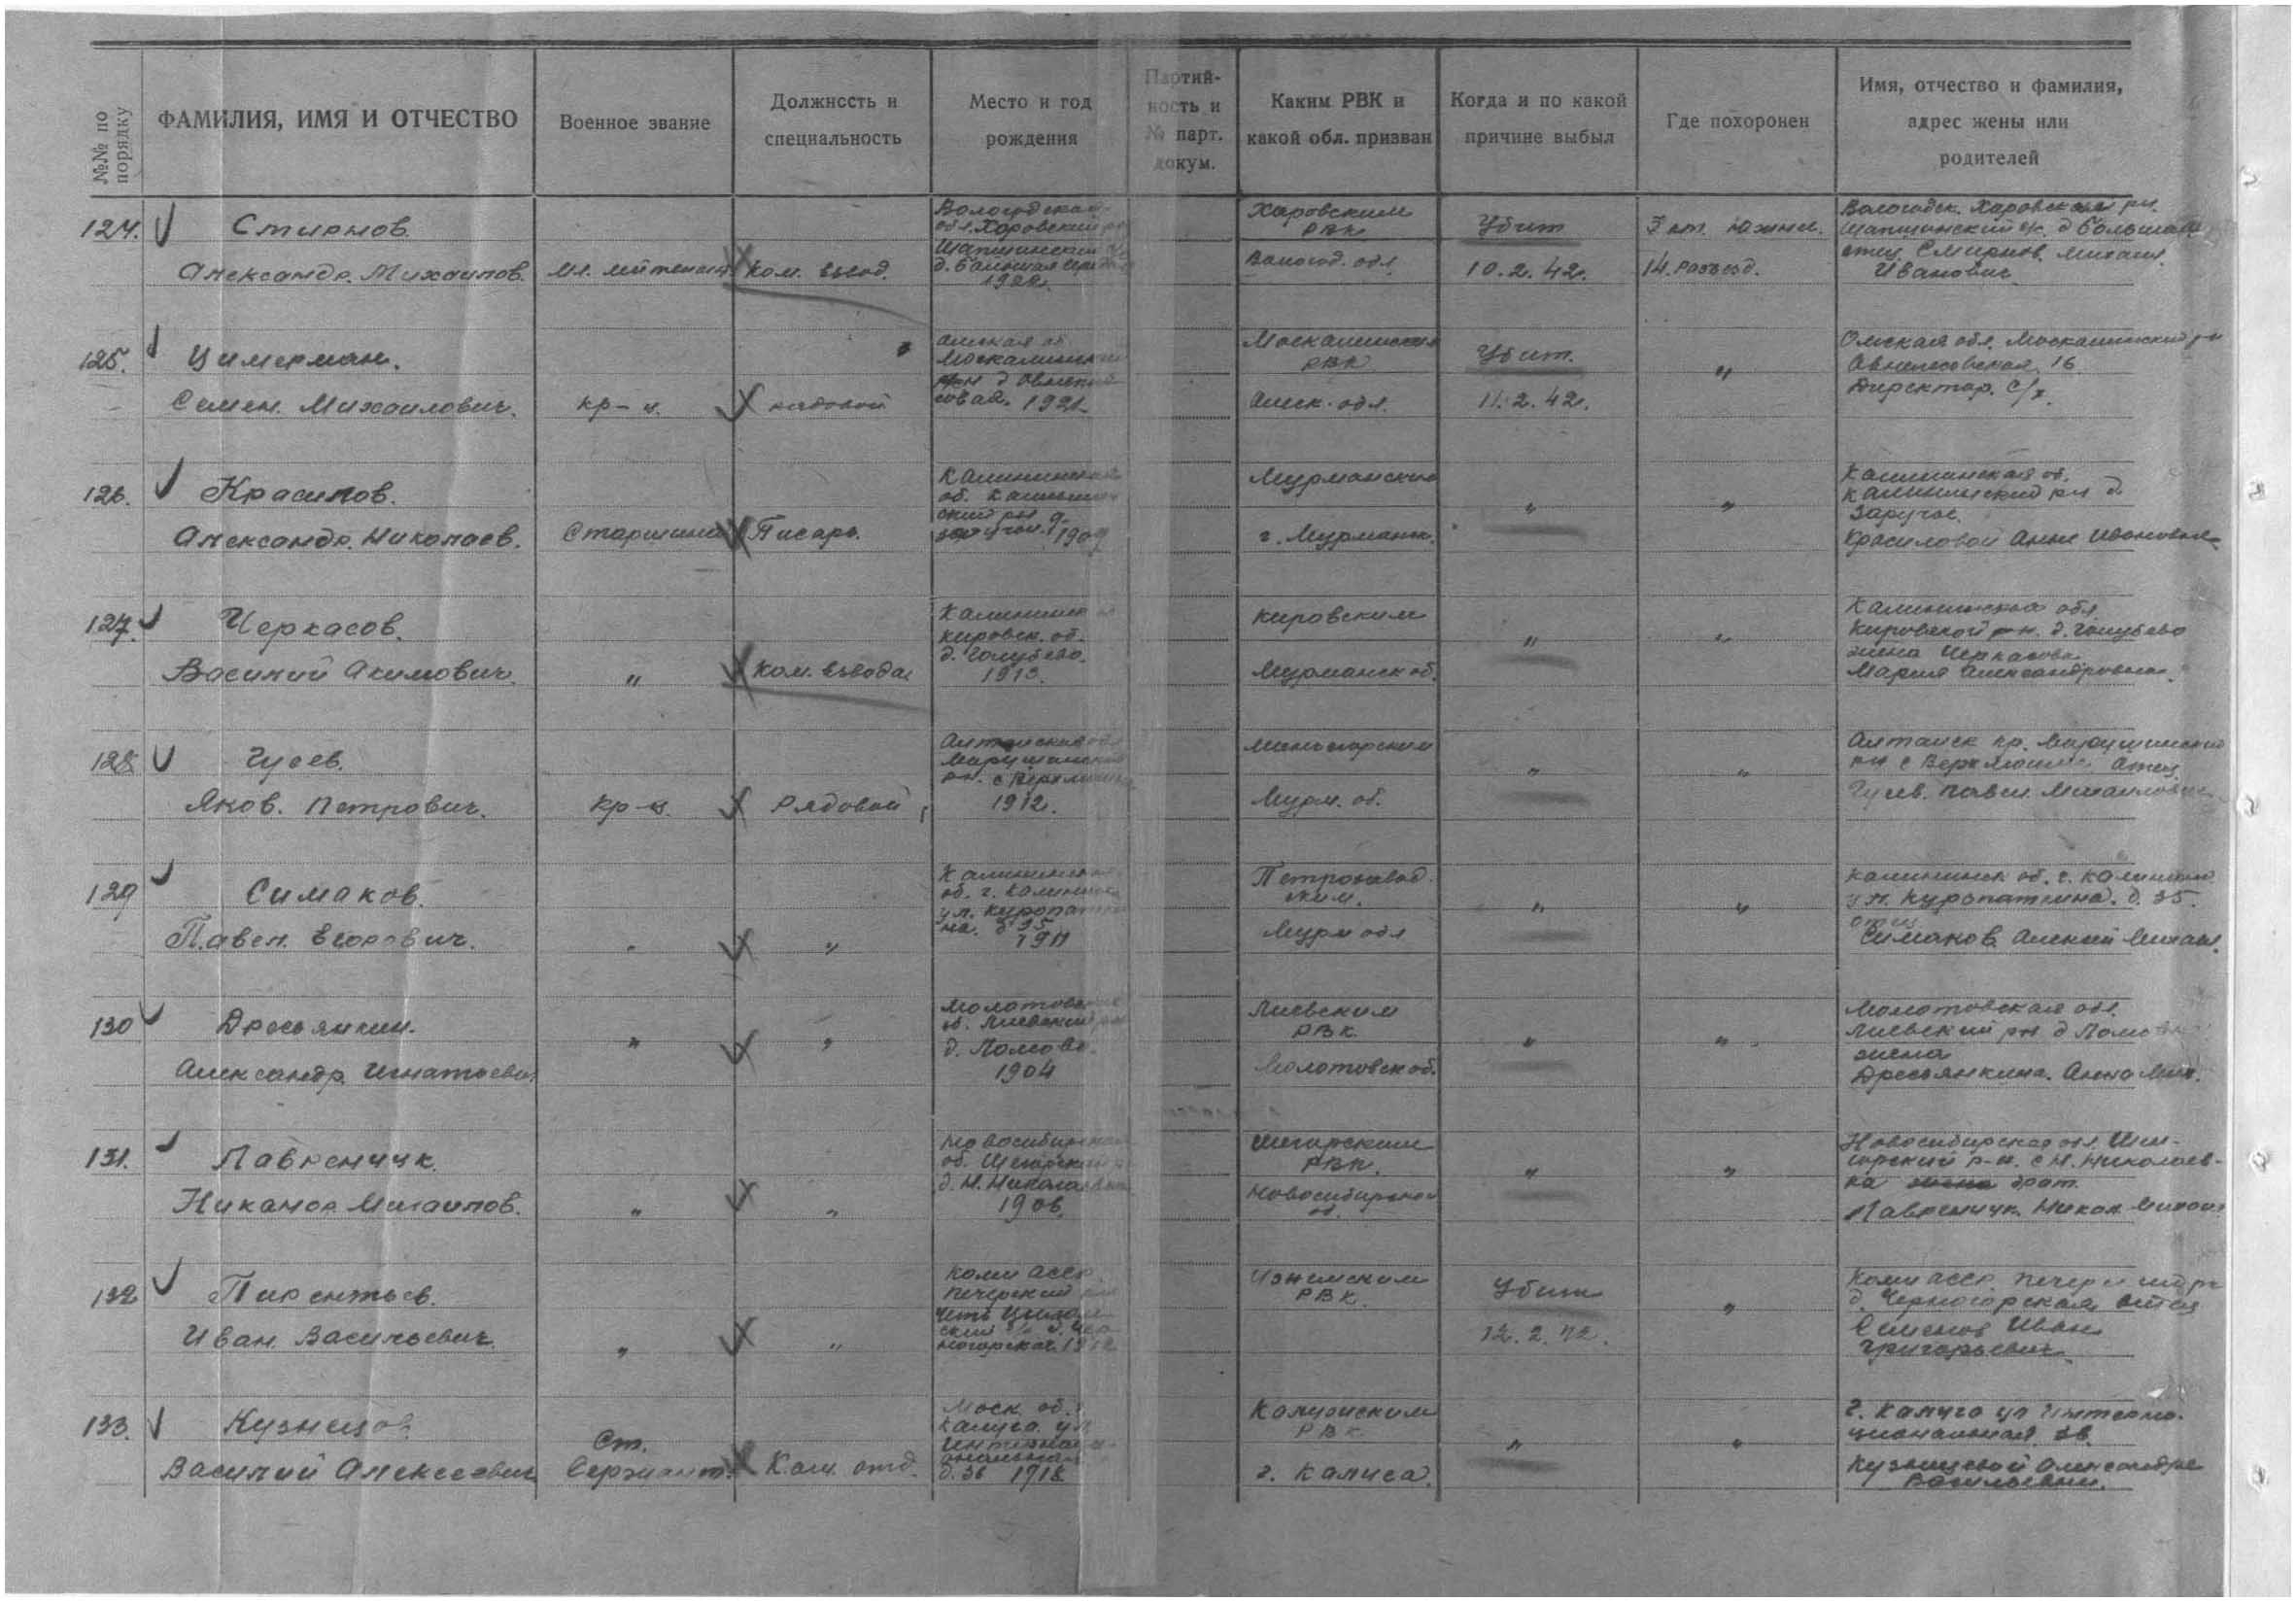 №№ по порядку
ФАМИЛИЯ, ИМЯ И ОТЧЕСТВО
Военное звание
Должность и специальность
Место и год рождения
Партийность и № парт. докум.
Каким РВК и какой обл. призван
Когда и по какой причине выбыл
Где похоронен
Имя, отчество и фамилия, адрес жены или родителей
124. Смирнов.
Александр. Михаилов.
Мл. лейтенант
Ком. взвод.
Вологодская
обл. Харовский
д. Большая
Харовским
РВК
Вологод. обл.
Убит
10.2.42.
3 км. южнее.
14. разъезд.
Вологодск. Харовский рн.
отец. Смирнов. Михаил.
Иванович
125. Цимерман.
Семен. Михаилович.
кр-ц.
рядовой
Омская об
Москаленский
1921
РВК
Омск. обл.
Убит.
11.2.42.
"
Омская обл. Москаленский р-н
16
Директор. с/х.
126. Красилов.
Александр. Николаев.
Старшина
Писарь.
Калининская
об. Калинин
ский рн д.
1909
Мурманским
г. Мурманск.
"
"
Калининская об.
Калининский рн д.
Заручье.
Красиловой Анне Ивановне
127. Черкасов.
Василий Акимович.
"
Ком. взвода
Калининск
Кировск. об.
д. Голубево.
1913.
Кировским
Мурманск об.
"
"
Калининская обл
Кировской р-н. д. Голубево
жена Черкасова
Мария Александровна.
128 Гусев.
Яков. Петрович.
кр-ц.
Рядовой
Марушинский
рн.
1912.
Мурм. об.
"
"
Алтайск кр. Марушинский
рн с отец
Гусев. Михайлович
129 Симаков.
Павел. Егорович.
"
"
Калининская
об. г. Калинин
ул. Куропатки
на. д 35
1911
Петрозавод
ским.
Мурм обл
"
"
Калининск об. г. Калинин
ул. Куропаткина. д. 35.
отец
Симаков. Алексей Михаил.
130 Дресвянкин.
Александр Игнатьевич
"
"
Молотовская
д. Ломово.
1904
РВК.
Молотовск об.
"
"
Молотовская обл.
жена
Дресвянкина. Анна Мих.
131. Лавренчук
Никанор Михаилов.
"
"
Новосибирская
об. Шегарский
д. Н. Николаевка
1906.
Шегарским
РВК.
Новосибирской
об.
"
"
Новосибирская обл. Ше-
гарский р-н. с Н. Николаев-
ка жена брат.
Лавренчук. Никол. Михаил.
132
Иван. Васильевич.
"
"
Коми АССР
Печерский
Ижемским
РВК
Убит
12.2.42.
"
Коми АССР
д. Черногорская отец
Семенов Иван
Григорьевич
133. Кузнецов
Василий Алексеевич
Ст.
Сержант.
Ком. отд.
Моск об. г
Калуга ул
Интернаци
ональная
д. 36 1918
Калужским
РВК
г. Калуга.
"
"
г. Калуга ул Интерна-
циональная 36.
Кузнецовой Александре
Васильевне.